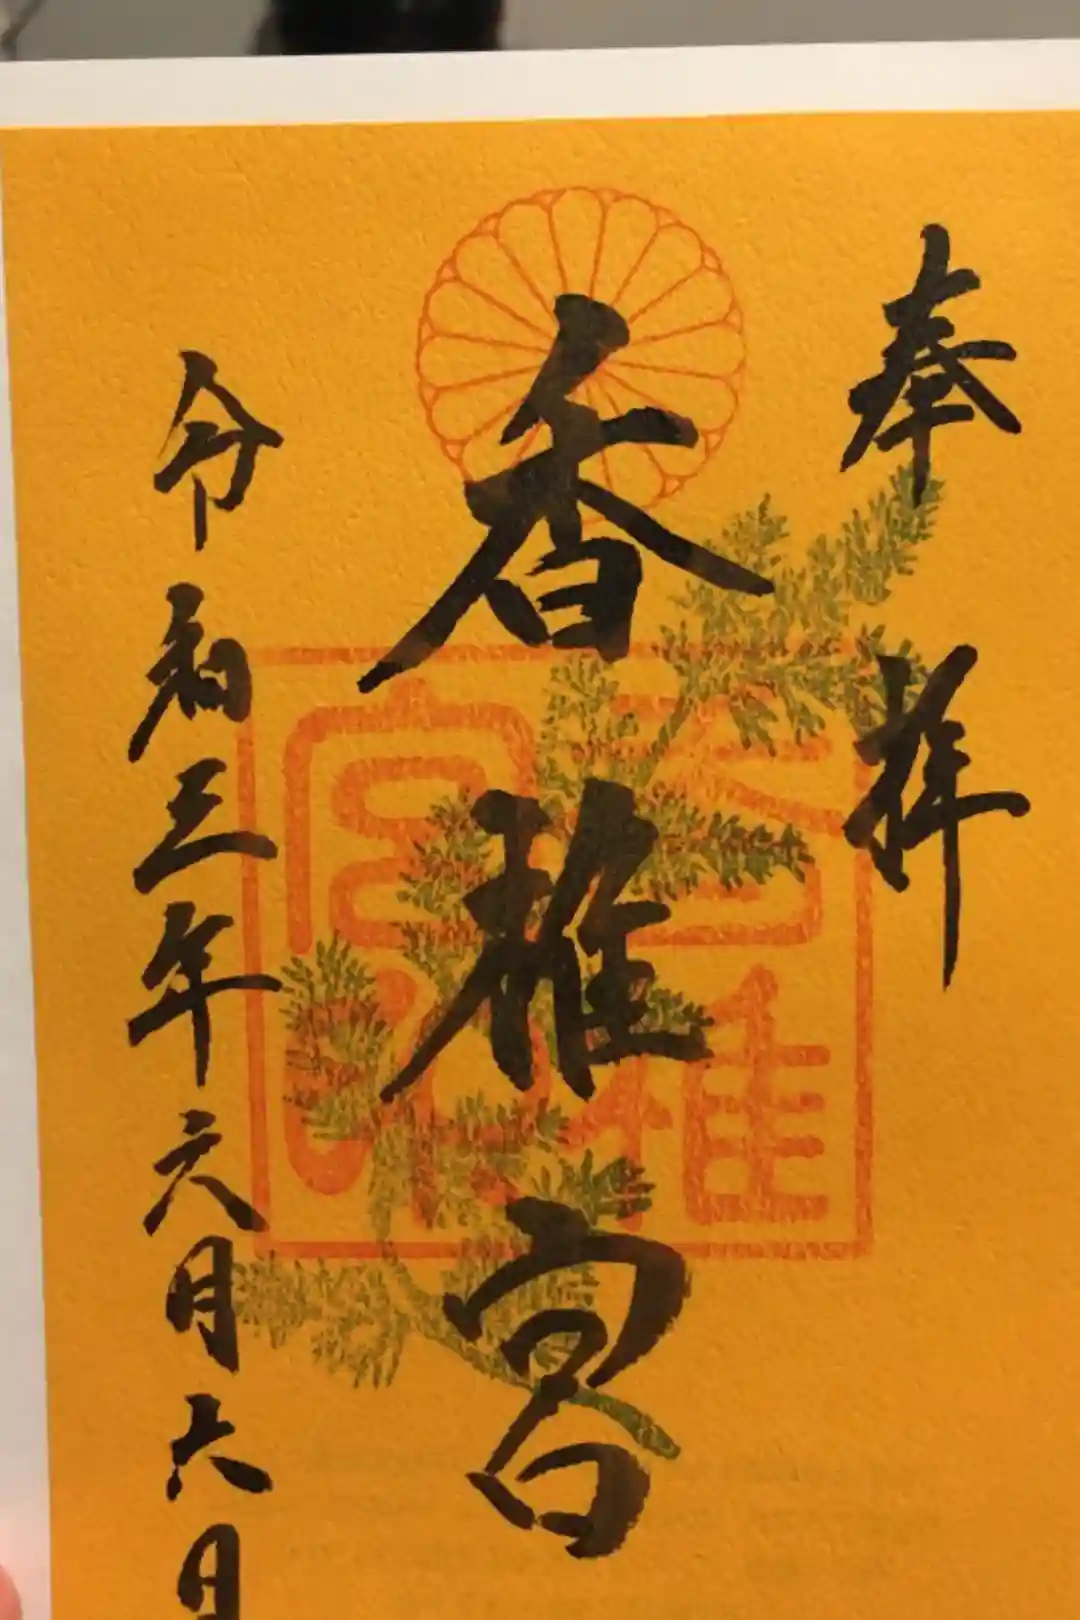 奉拝
香椎宮
令和三年六月六日
香椎宮印